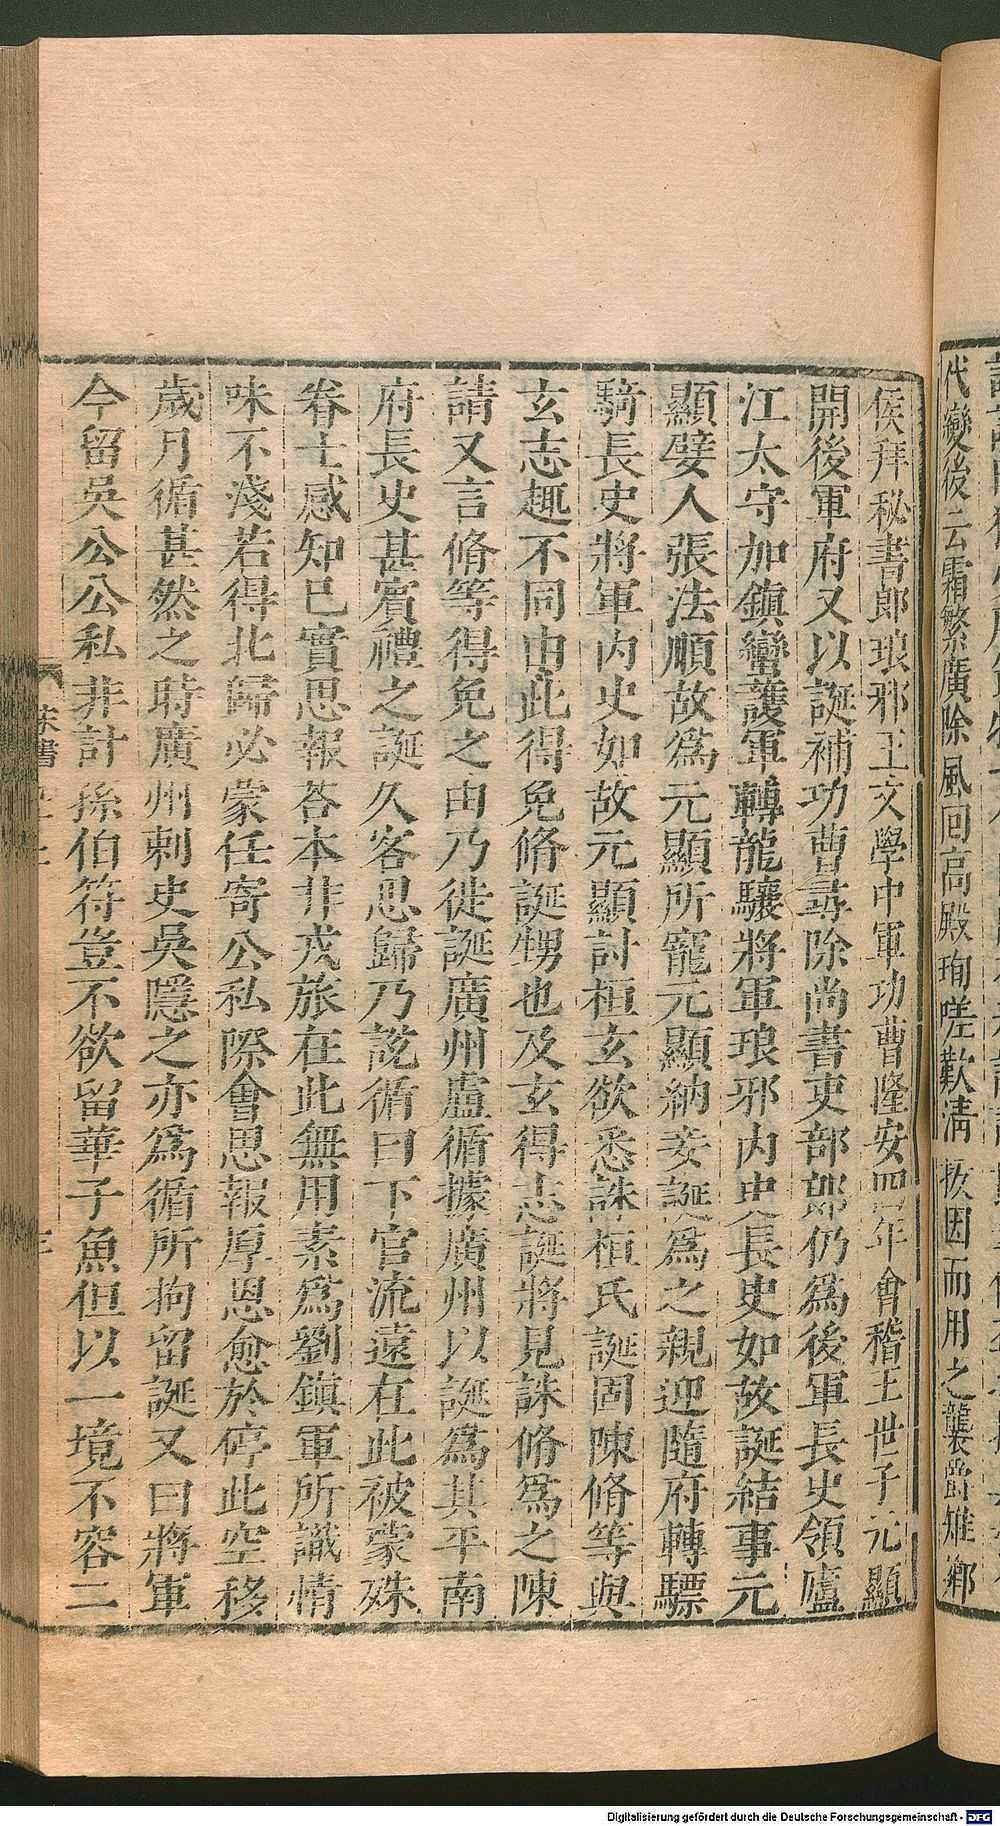 代變後云霜繁廣除風回高殿珣嗟歎淸拔因而用之襲爵雉鄉
侯拜秘書郎琅邪王文學中軍功曹隆安四年會稽王世子元顯
開後軍府又以誕補功曹尋除尚書吏部郎仍爲後軍長史領廬
江太守加鎭蠻護軍轉龍驤將軍琅邪内史長史如故誕結事元
顯嬖人張法順故爲元顯所寵元顯納妾誕爲之親迎隨府轉驃
騎長史將軍内史如故元顯討桓玄欲悉誅桓氏誕固陳脩等與
玄志趣不同由此得免脩誕甥也及玄得志誕將見誅脩爲之陳
請又言脩等得免之由乃徙誕廣州盧循據廣州以誕爲其平南
府長史甚賓禮之誕久客思歸乃說循曰下官流遠在此被蒙殊
眷士感知已實思報荅本非戎旅在此無用素爲劉鎭軍所識情
味不淺若得北歸必蒙任寄公私際會思報厚恩愈於停此空移
歲月循甚然之時廣州刺史吳隱之亦爲循所拘留誕又曰將軍
今留吳公公私非計孫伯符豈不欲留華子魚但以一境不容二
宋書
Digitalisierung gefördert durch die Deutsche Forschungsgemeinschaft - DFG